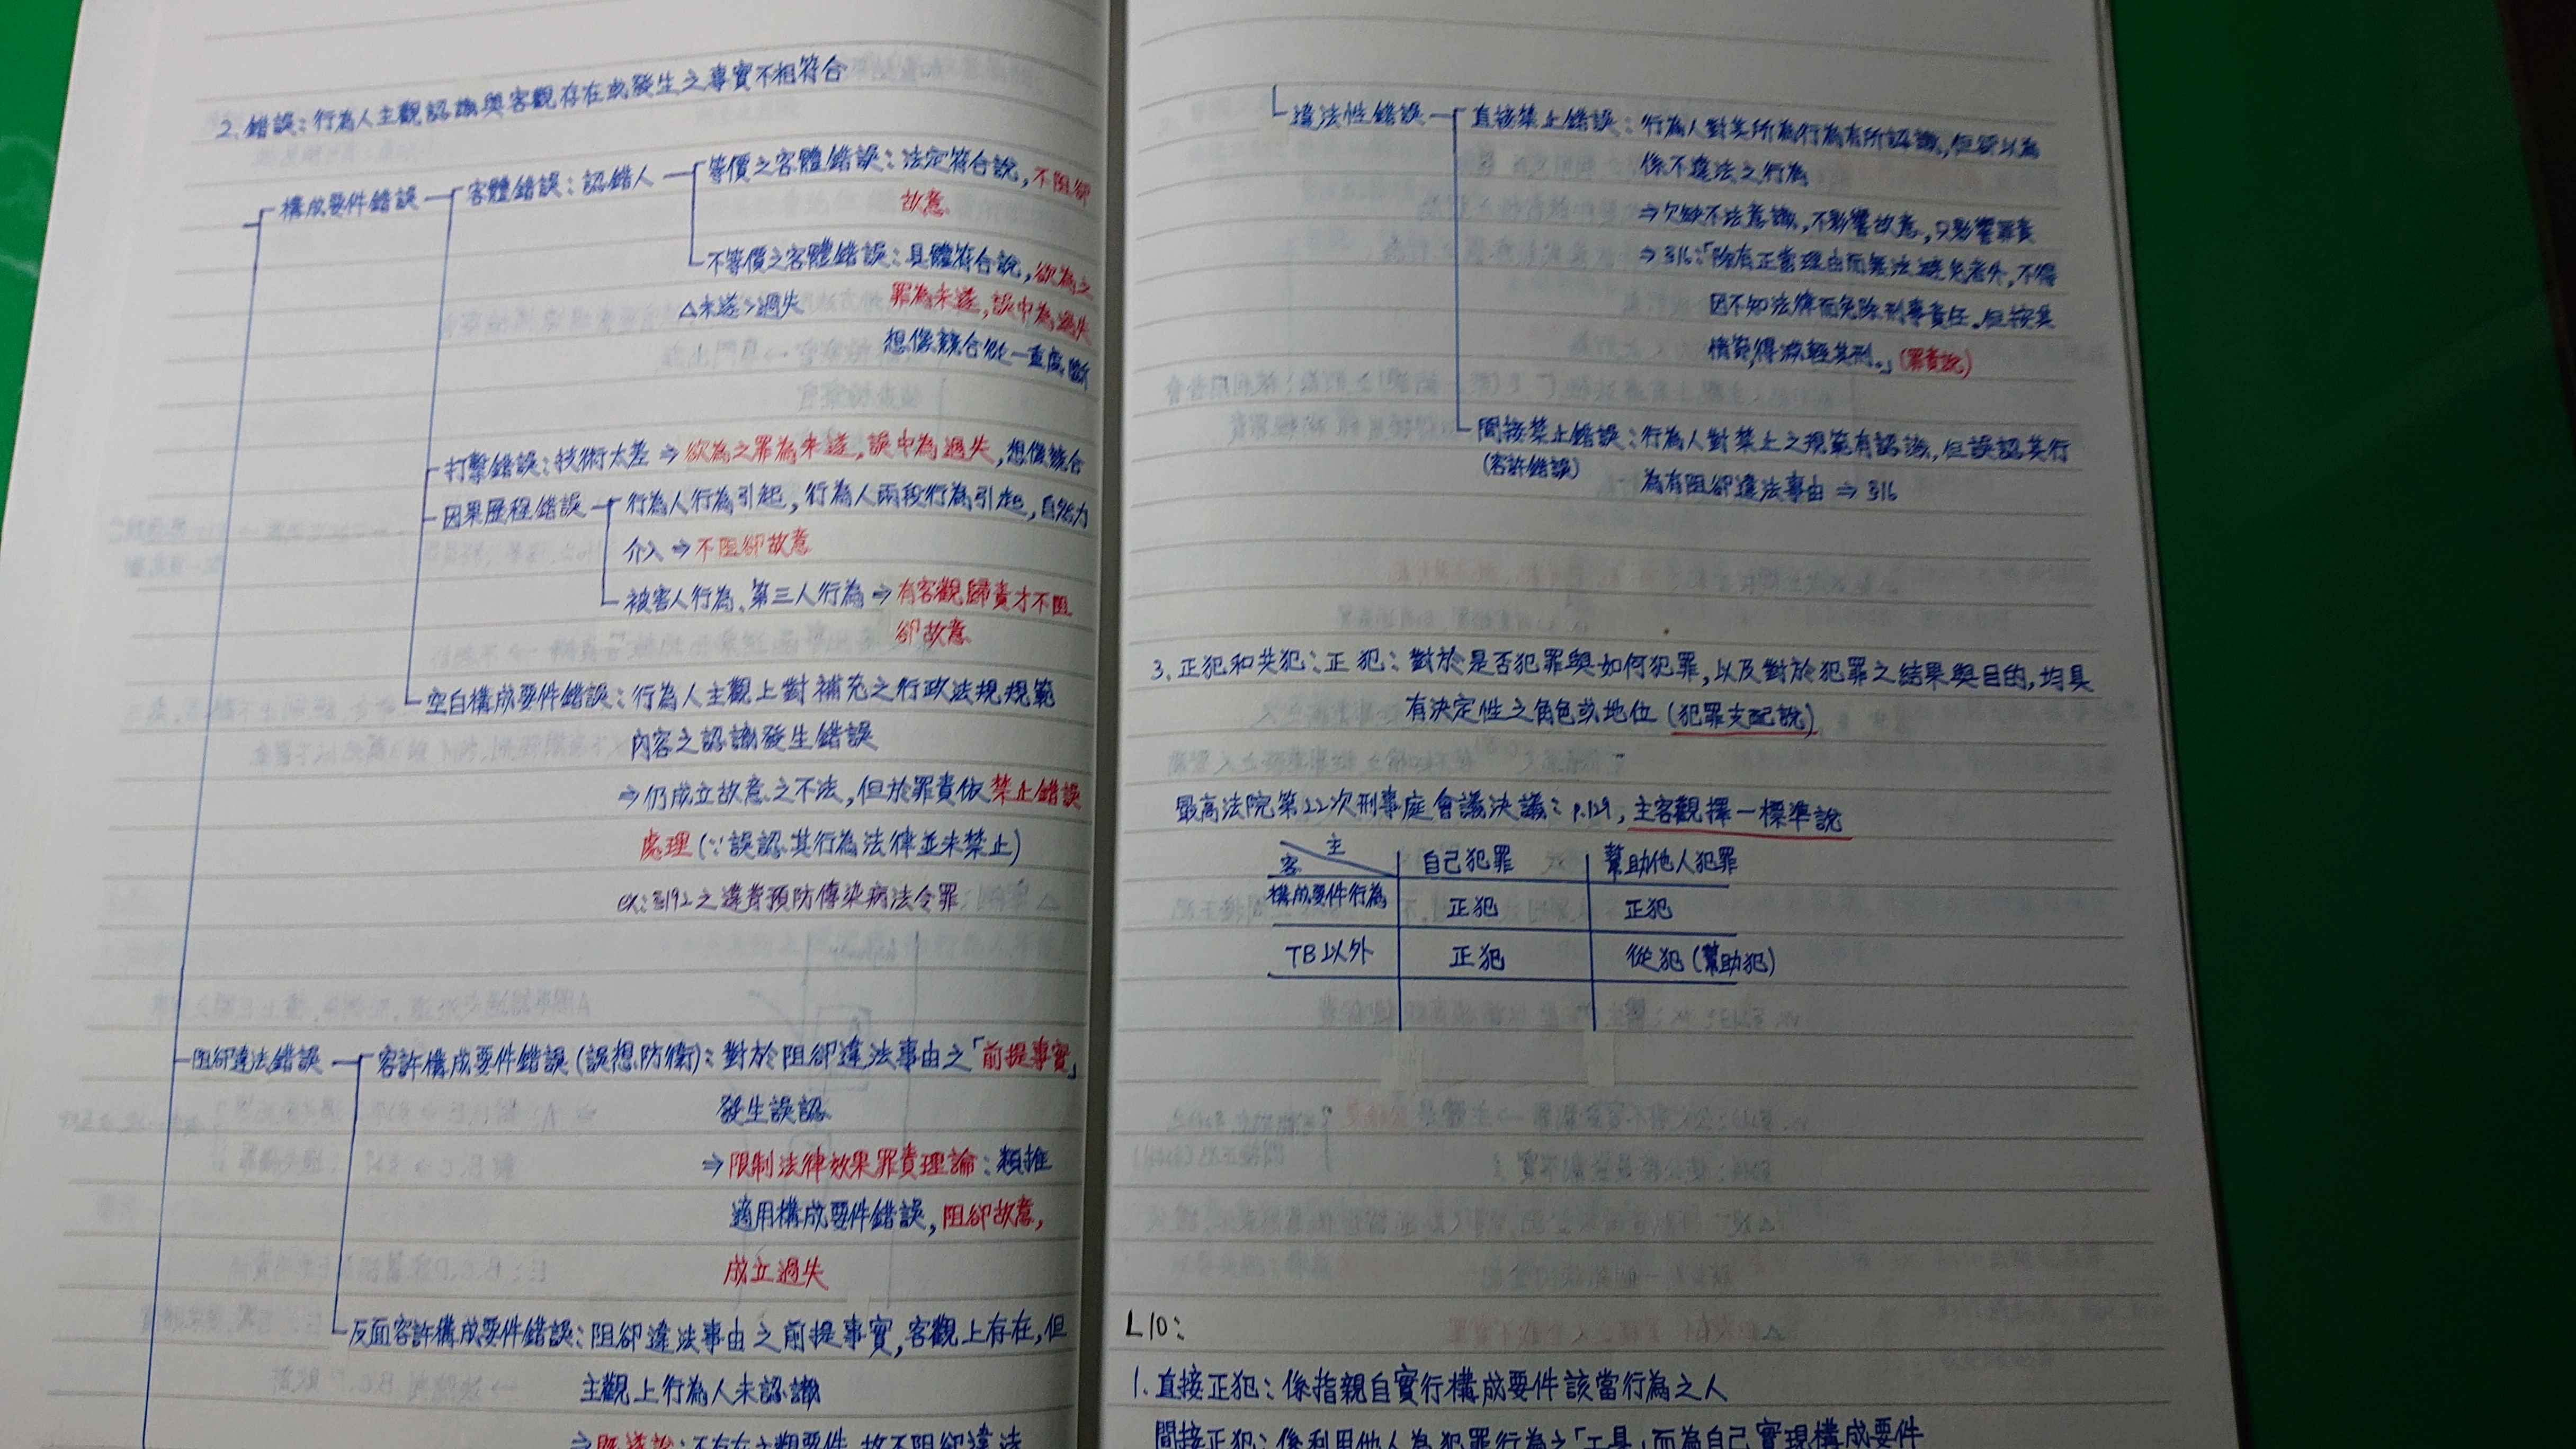 2. 錯誤:行為人主觀認識與客觀存在或發生之事實不相符合
構成要件錯誤
客體錯誤:認錯人
等價之客體錯誤:法定符合說,不阻卻
故意
不等價之客體錯誤:具體符合說,欲為之
△未遂>過失
罪為未遂,誤中為過失
想像競合從一重處斷
打擊錯誤:技術太差⇒欲為之罪為未遂,誤中為過失,想像競合
因果歷程錯誤
行為人行為引起,行為人兩段行為引起,自然力
介入⇒不阻卻故意
被害人行為、第三人行為⇒有客觀歸責才不阻
卻故意
空白構成要件錯誤:行為人主觀上對補充之行政法規規範
內容之認識發生錯誤
⇒仍成立故意之不法,但於罪責依禁止錯誤
處理(∵誤認其行為法律並未禁止)
ex:§192之違背預防傳染病法令罪
阻卻違法錯誤
容許構成要件錯誤(誤想防衛):對於阻卻違法事由之「前提事實」
發生誤認
⇒限制法律效果罪責理論:類推
適用構成要件錯誤,阻卻故意,
成立過失
反面容許構成要件錯誤:阻卻違法事由之前提事實,客觀上存在,但
主觀上行為人未認識
⇒既遂說:不存在主觀要件,故不阻卻違法
違法性錯誤
直接禁止錯誤:行為人對其所為行為有所認識,但誤以為
係不違法之行為
⇒欠缺不法意識,不影響故意,只影響罪責
⇒§16:「除有正當理由而無法避免者外,不得
因不知法律而免除刑事責任。但按其
情節,得減輕其刑。」(罪責說)
間接禁止錯誤:行為人對禁止之規範有認識,但誤認其行
(容許錯誤)
為有阻卻違法事由⇒§16
3. 正犯和共犯:正犯:對於是否犯罪與如何犯罪,以及對於犯罪之結果與目的,均具
有決定性之角色或地位(犯罪支配說)
最高法院第22次刑事庭會議決議:p.129,主客觀擇一標準說
主
客
自己犯罪
幫助他人犯罪
構成要件行為
正犯
正犯
TB以外
正犯
從犯(幫助犯)
L10:
1. 直接正犯:係指親自實行構成要件該當行為之人
間接正犯:係利用他人為犯罪行為之「工具」而為自己實現構成要件